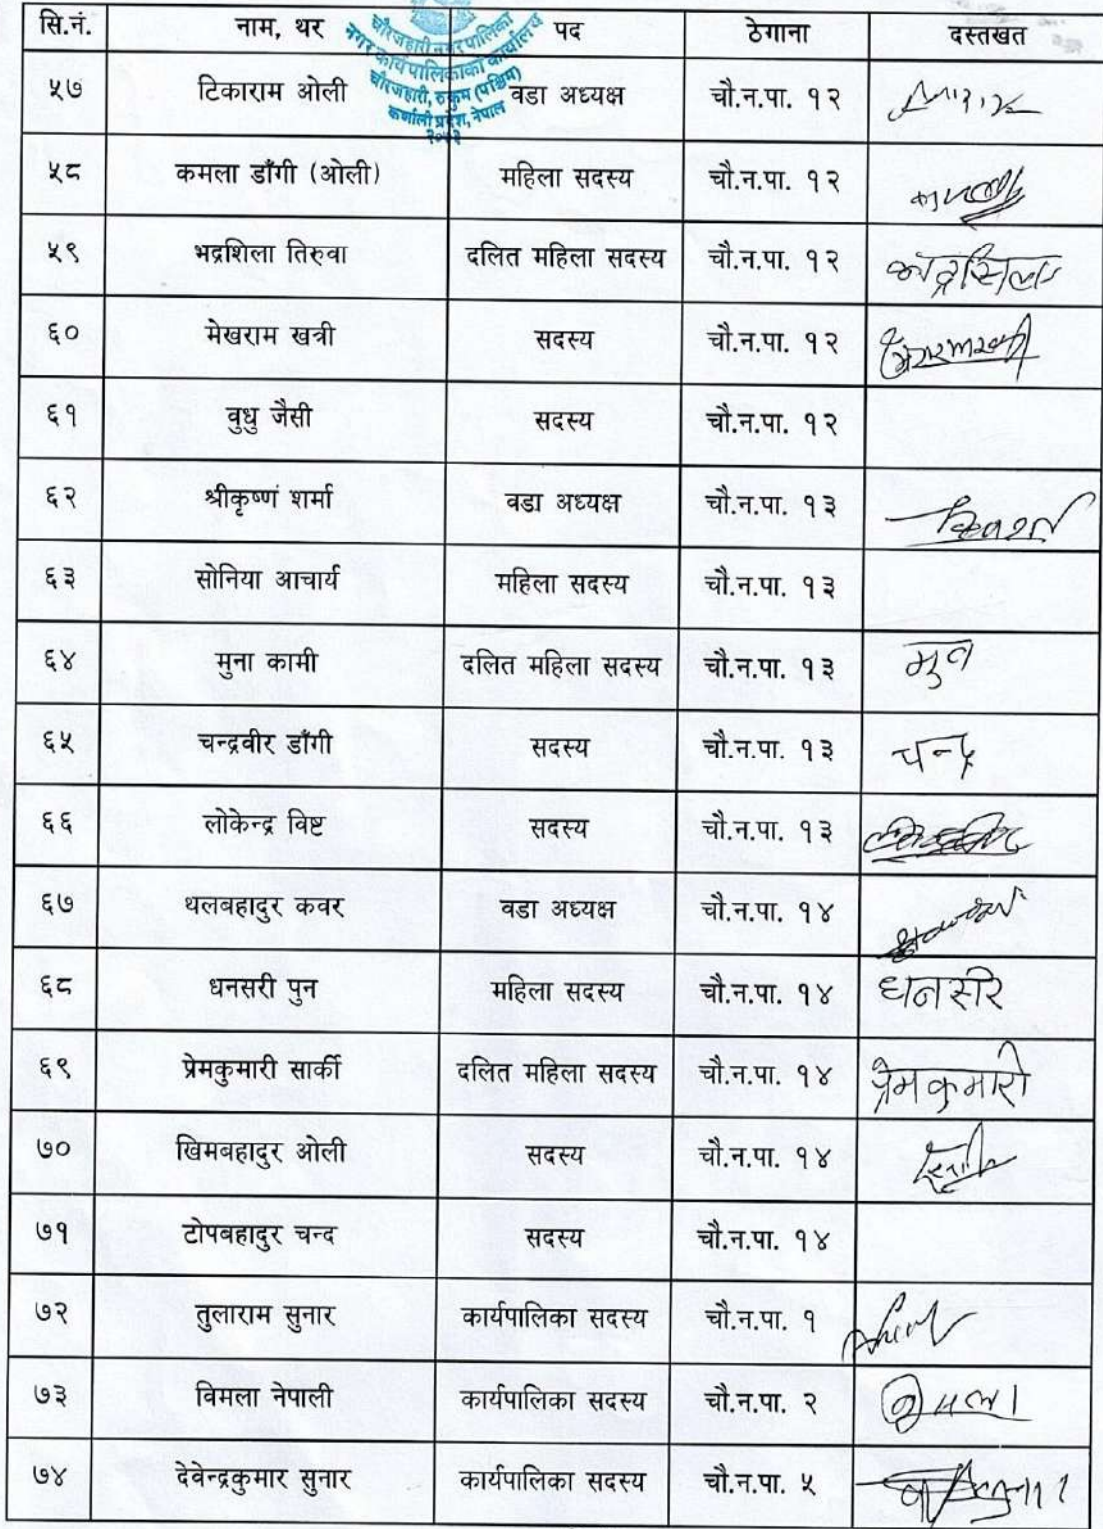 सि.नं. नाम, थर पद ठेगाना दस्तखत
चौरजहारी नगरपालिका
नगर कार्यपालिकाको कार्यालय
चौरजहारी, रुकुम (पश्चिम)
कर्णाली प्रदेश, नेपाल
५७ टिकाराम ओली वडा अध्यक्ष चौ.न.पा. १२
५८ कमला डाँगी (ओली) महिला सदस्य चौ.न.पा. १२
५९ भद्रशिला तिरुवा दलित महिला सदस्य चौ.न.पा. १२
६० मेखराम खत्री सदस्य चौ.न.पा. १२
६१ वुधु जैसी सदस्य चौ.न.पा. १२
६२ श्रीकृष्णं शर्मा वडा अध्यक्ष चौ.न.पा. १३
६३ सोनिया आचार्य महिला सदस्य चौ.न.पा. १३
६४ मुना कामी दलित महिला सदस्य चौ.न.पा. १३
६५ चन्द्रवीर डाँगी सदस्य चौ.न.पा. १३ चन्द्र
६६ लोकेन्द्र विष्ट सदस्य चौ.न.पा. १३
६७ थलबहादुर कवर वडा अध्यक्ष चौ.न.पा. १४
६८ धनसरी पुन महिला सदस्य चौ.न.पा. १४ धनसरि
६९ प्रेमकुमारी सार्की दलित महिला सदस्य चौ.न.पा. १४ प्रेमकुमारी
७० खिमबहादुर ओली सदस्य चौ.न.पा. १४
७१ टोपबहादुर चन्द सदस्य चौ.न.पा. १४
७२ तुलाराम सुनार कार्यपालिका सदस्य चौ.न.पा. १
७३ विमला नेपाली कार्यपालिका सदस्य चौ.न.पा. २
७४ देवेन्द्रकुमार सुनार कार्यपालिका सदस्य चौ.न.पा. ५